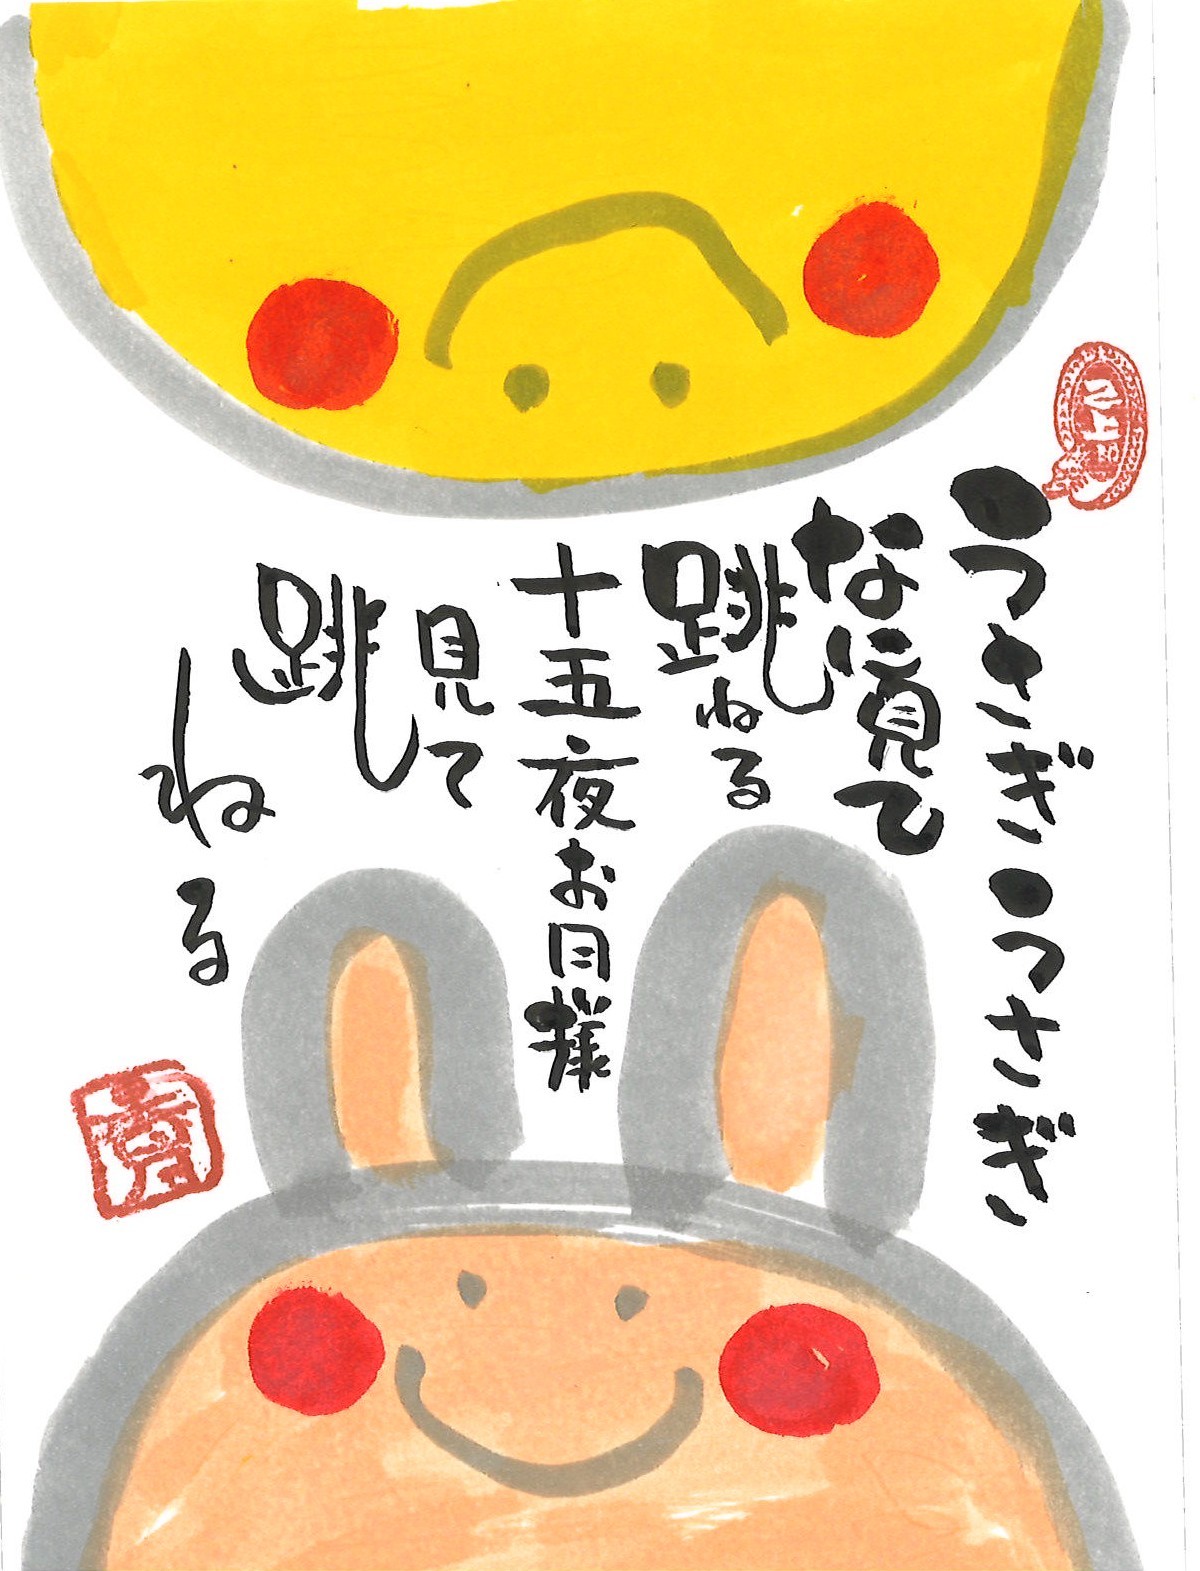 うさぎうさぎ
なに見て
跳ねる
十五夜お月様
見て
跳
ねる